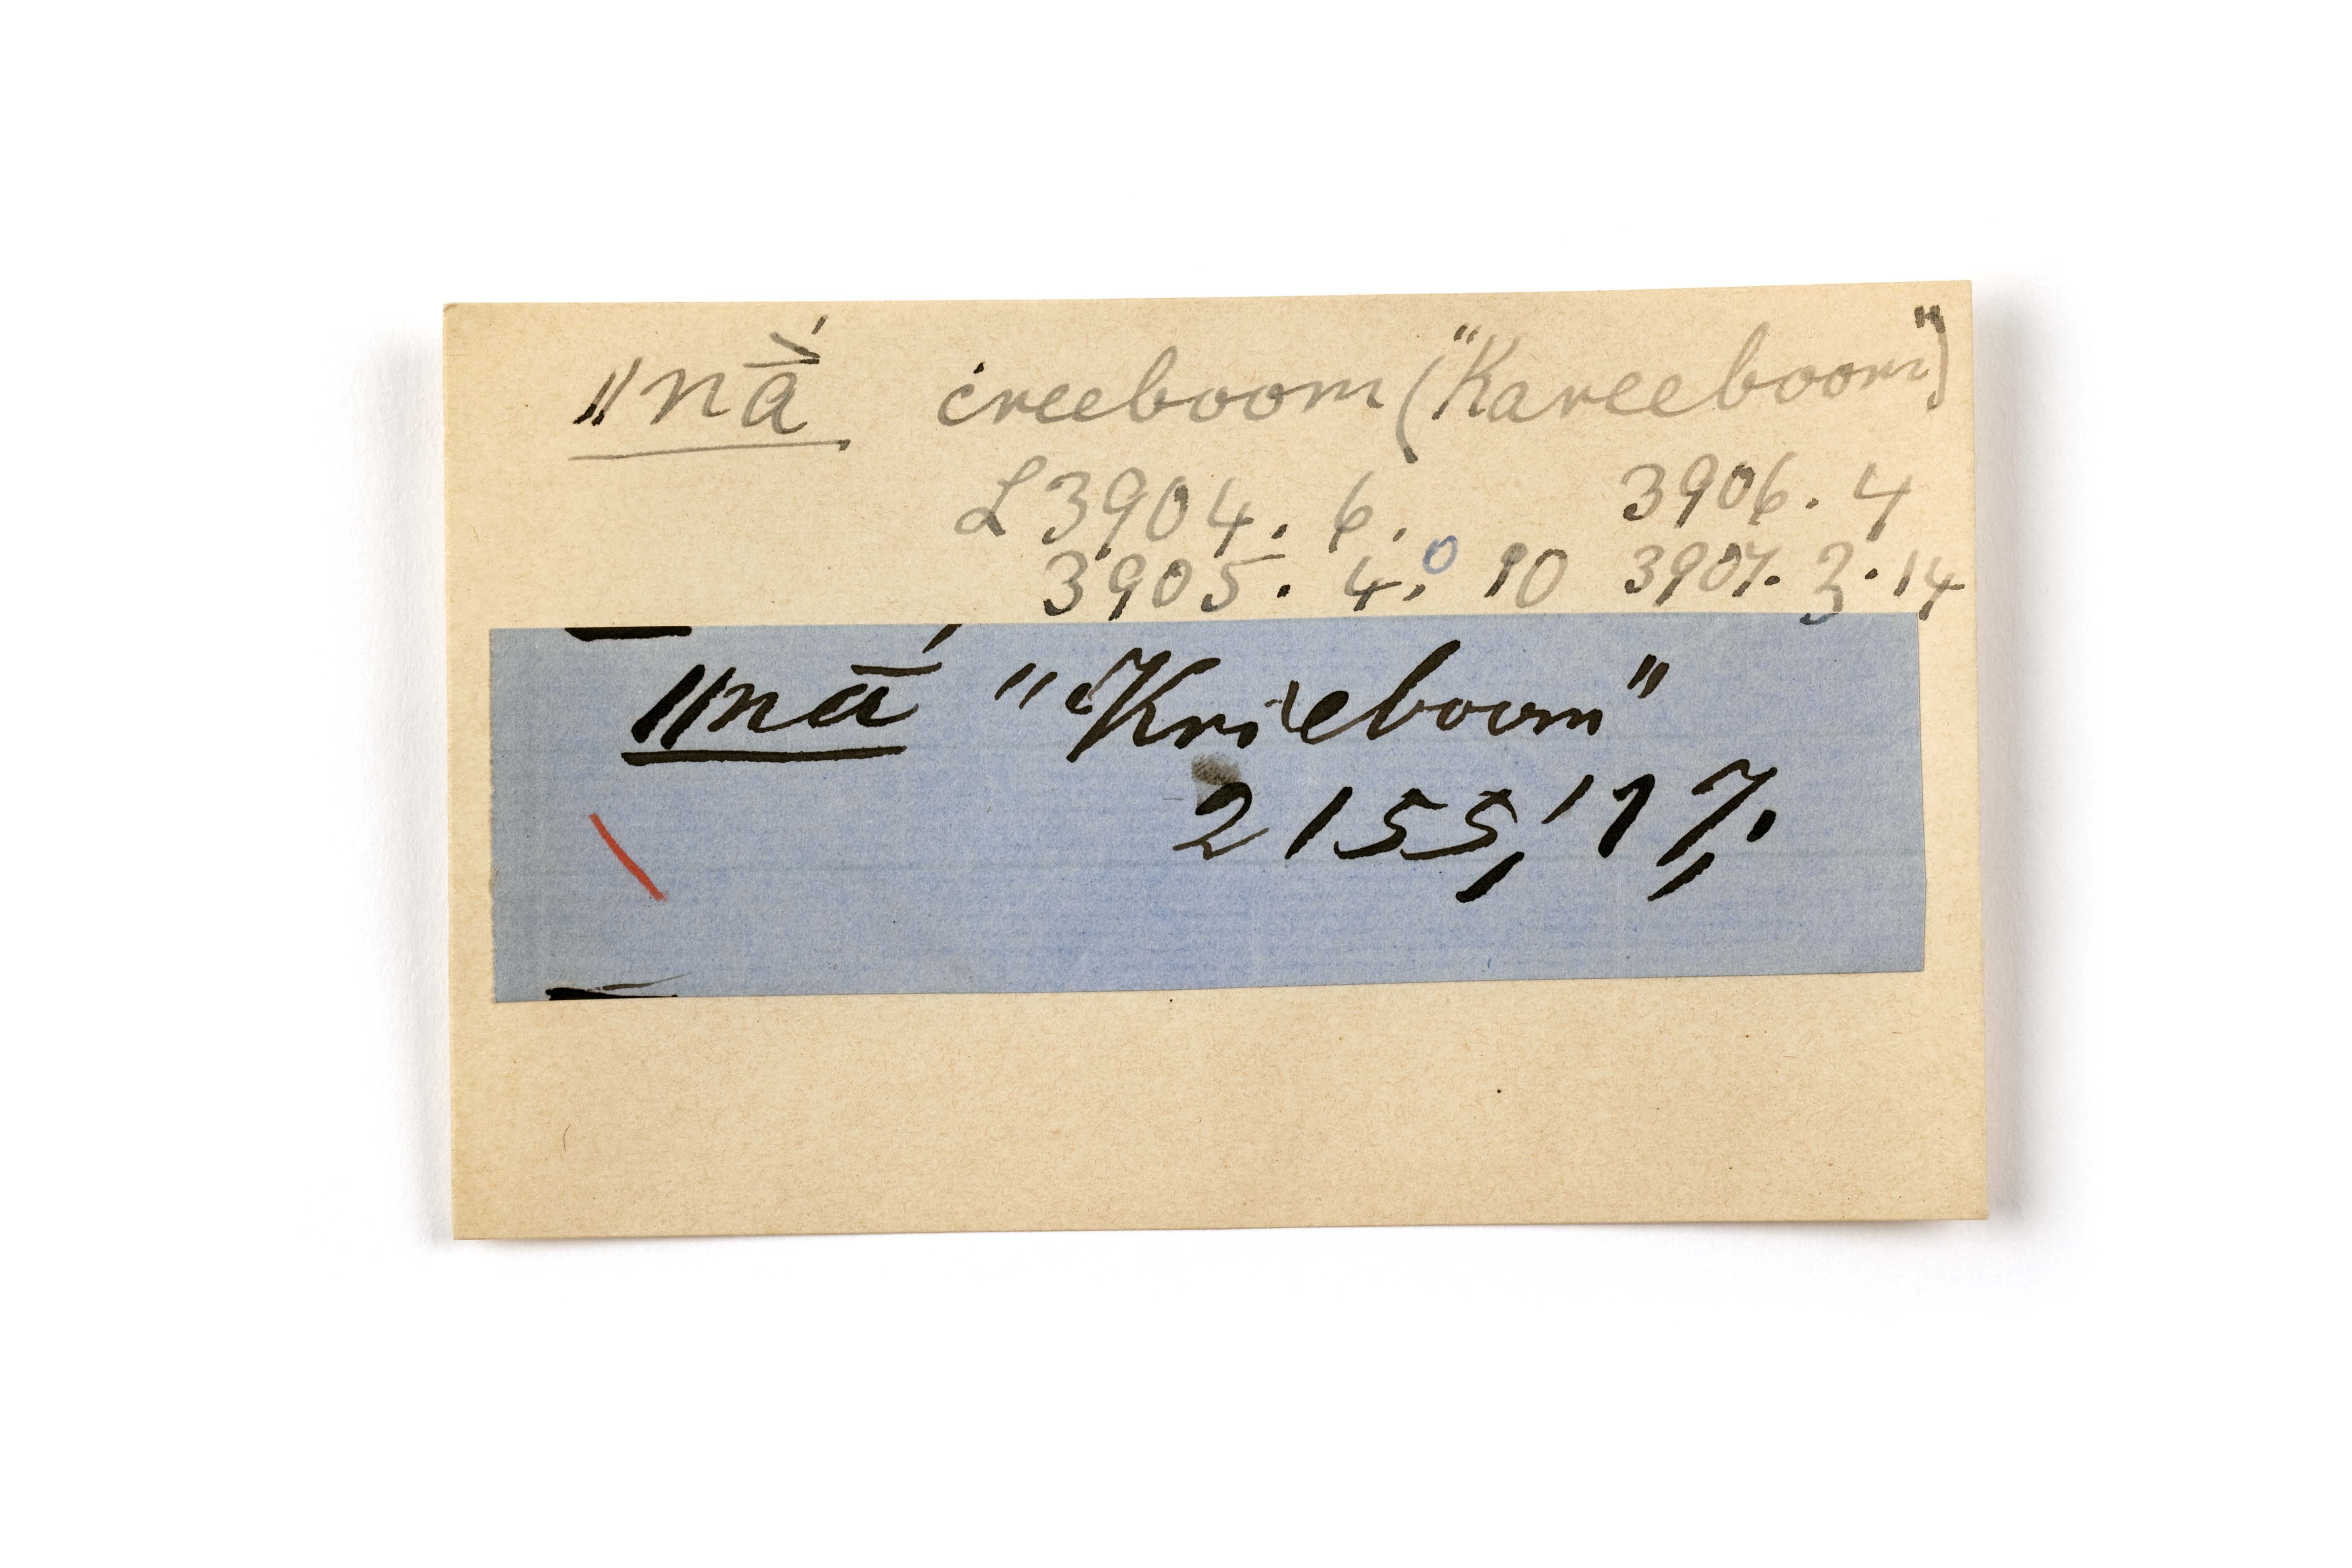 ǁnā́ creeboom ("Kareeboom")
L 3904. 6. 3906. 4
3905. 4. 10 3907. 3. 14
ǁnā́ "Krieboom"
2155, '17,.